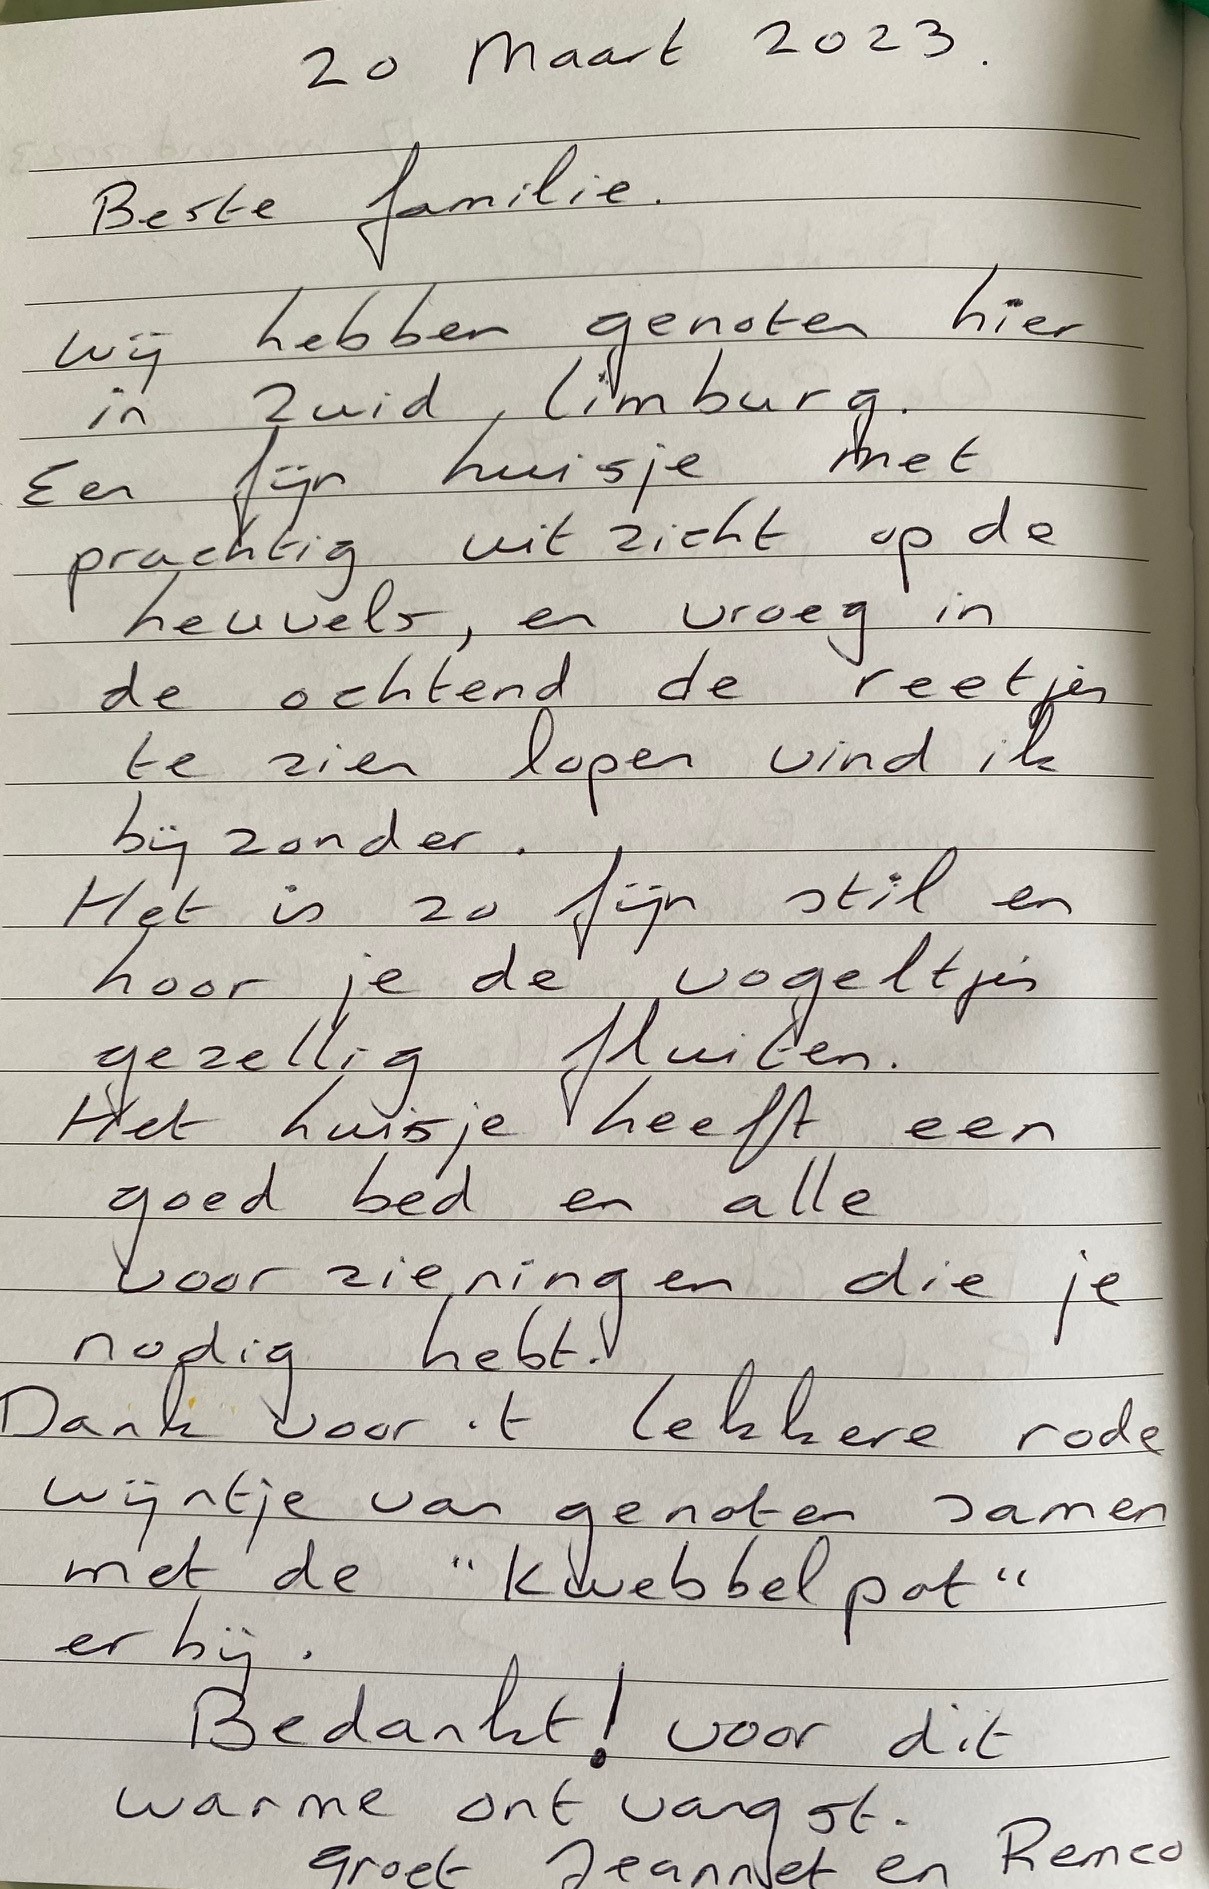 20 Maart 2023.
Beste familie.
Wij hebben genoten hier
in Zuid Limburg.
Een fijn huisje met
prachtig uitzicht op de
heuvels, en vroeg in
de ochtend de reetjes
te zien lopen vind ik
bijzonder.
Het is zo fijn stil en
hoor je de vogeltjes
gezellig fluiten.
Het huisje heeft een
goed bed en alle
voorzieningen die je
nodig hebt.
Dank voor 't lekkere rode
wijntje van genoten samen
met de "Kwebbelpot"
erbij.
Bedankt! voor dit
warme ontvangst.
groet Jeannet en Remco